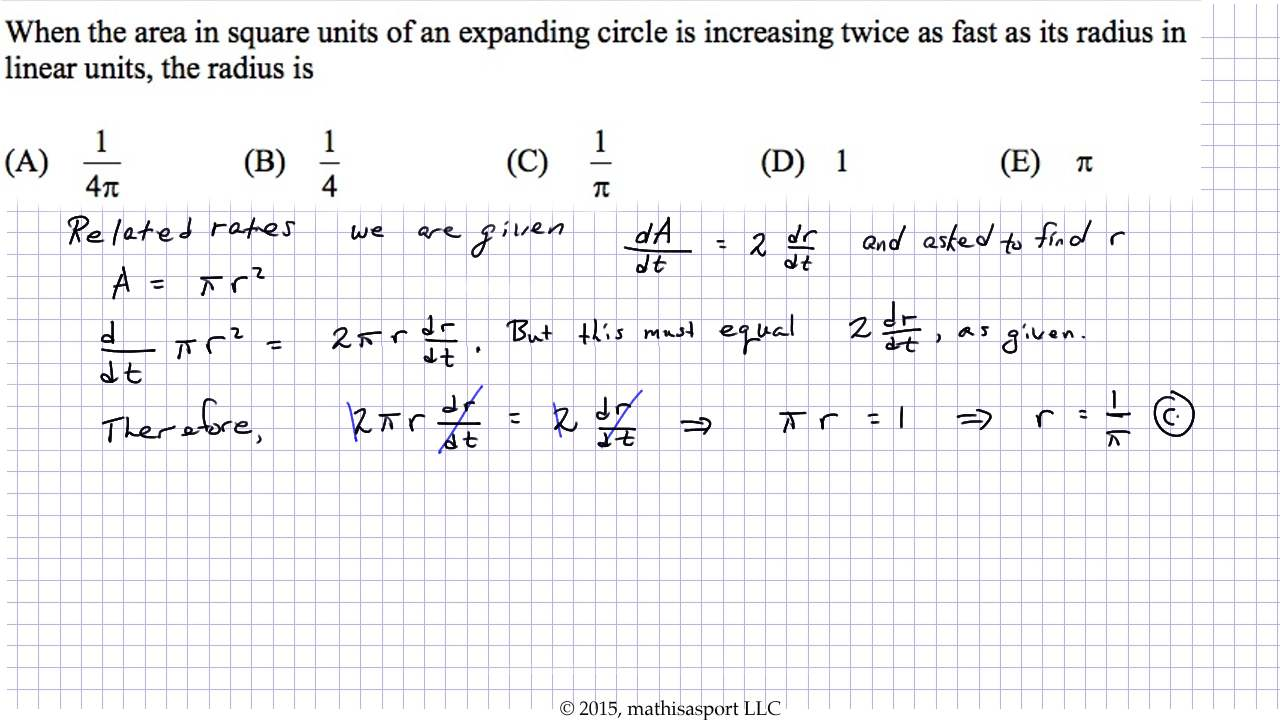 When the area in square units of an expanding circle is increasing twice as fast as its radius in
linear units, the radius is
(A) 1/4π (B) 1/4 (C) 1/π (D) 1 (E) π
Related rates we are given dA/dt = 2 dr/dt and asked to find r
A = πr²
d/dt πr² = 2πr dr/dt. But this must equal 2 dr/dt, as given.
Therefore, 2πr dr/dt = 2 dr/dt ⇒ πr = 1 ⇒ r = 1/π C.
© 2015, mathisasport LLC